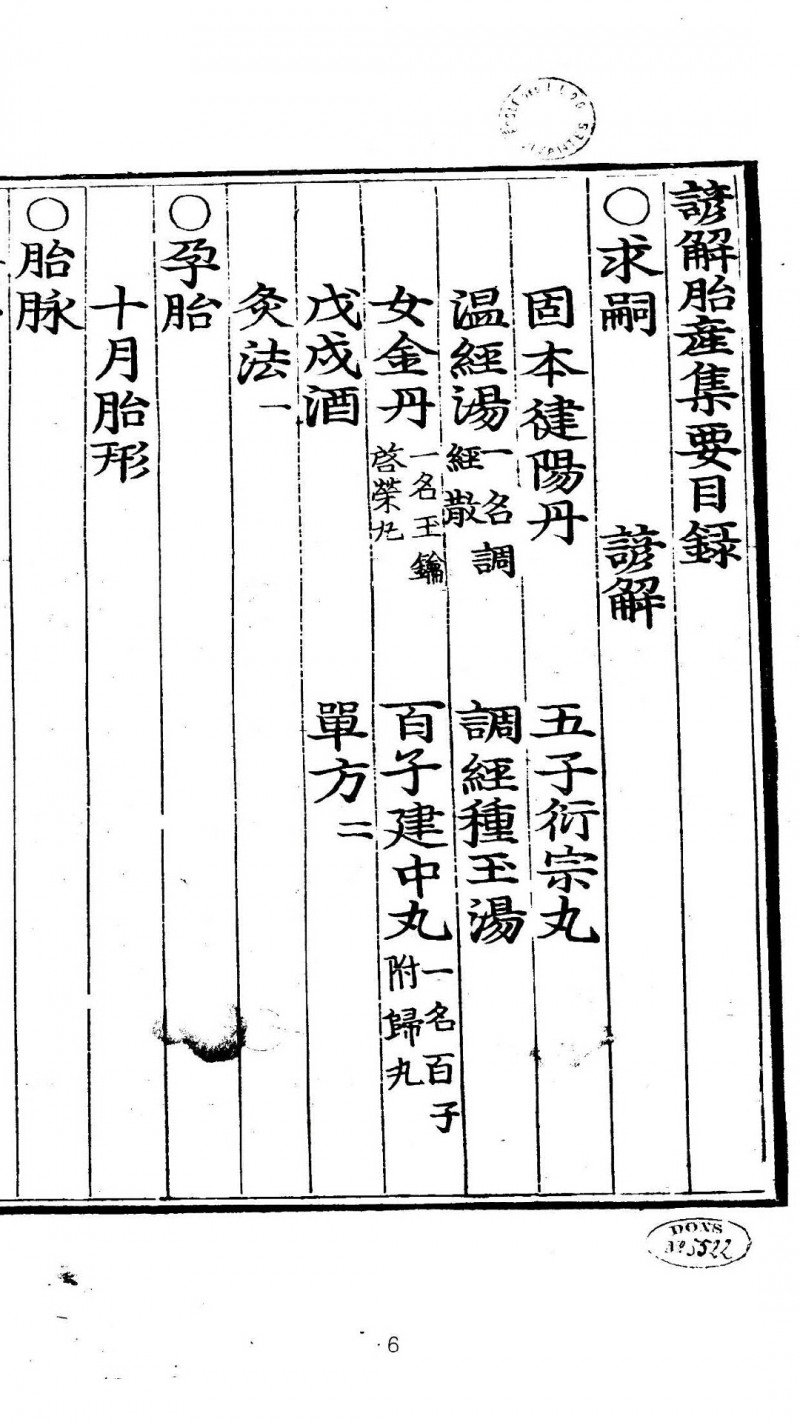 諺解胎産集要目録
○求嗣 諺解
固本健陽丹 五子衍宗丸
温經湯 一名調經散 調經種玉湯
女金丹 一名玉鑰啓榮丸 百子建中丸 一名百子附歸丸
戊戌酒 單方 二
灸法 一
○孕胎
十月胎形
○胎脉
DONS
Nº 5522
6